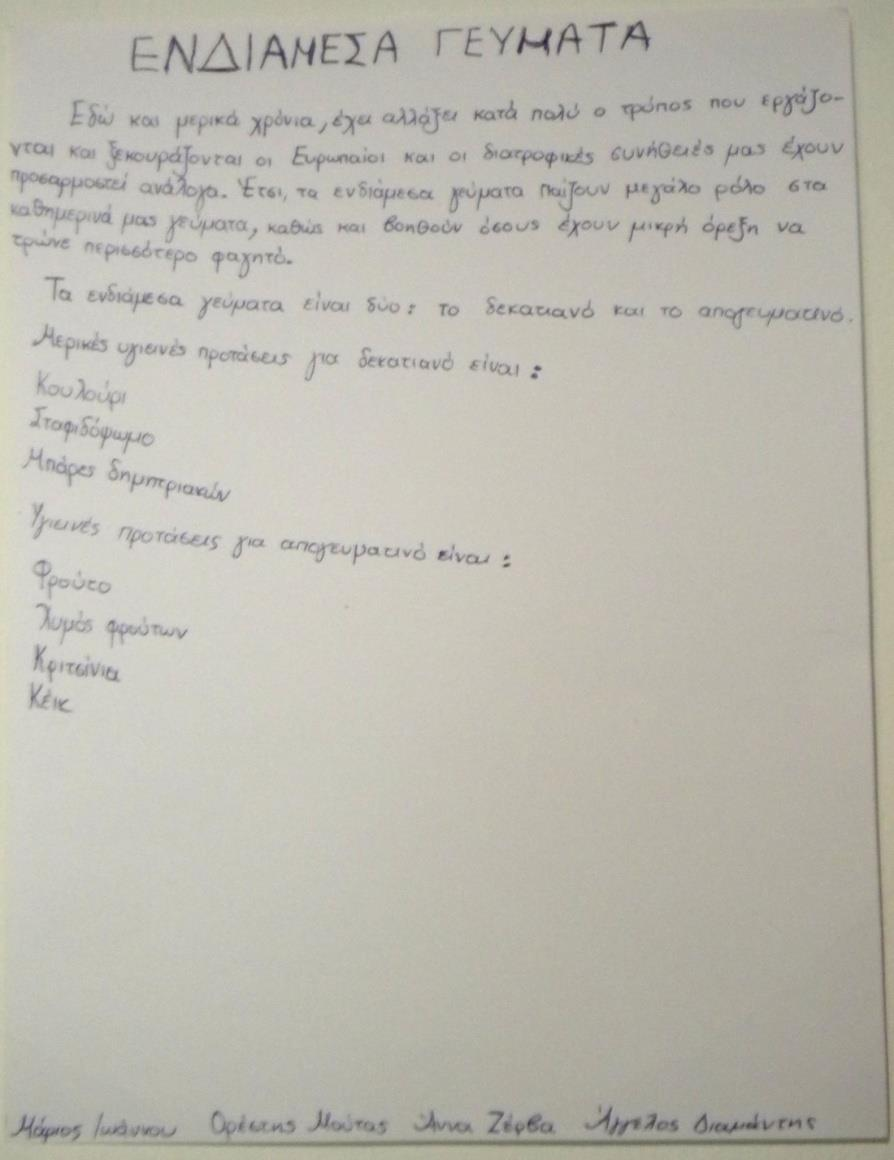 ΕΝΔΙΑΜΕΣΑ ΓΕΥΜΑΤΑ
Εδώ και μερικά χρόνια, έχει αλλάξει κατά πολύ ο τρόπος που εργάζο-
νται και ξεκουράζονται οι Ευρωπαίοι και οι διατροφικές συνήθειές μας έχουν
προσαρμοστεί ανάλογα. Έτσι, τα ενδιάμεσα γεύματα παίζουν μεγάλο ρόλο στα
καθημερινά μας γεύματα, καθώς και βοηθούν όσους έχουν μικρή όρεξη να
τρώνε περισσότερο φαγητό.
Τα ενδιάμεσα γεύματα είναι δύο: το δεκατιανό και το απογευματινό.
Μερικές υγιεινές προτάσεις για δεκατιανό είναι:
Κουλούρι
Σταφιδόψωμο
Μπάρες δημητριακών
Υγιεινές προτάσεις για απογευματινό είναι:
Φρούτο
Χυμός φρούτων
Κριτσίνια
Κέικ
Μάριος Ιωάννου Ορέστης Μούτας Άννα Ζέρβα Άγγελος Διαμάντης